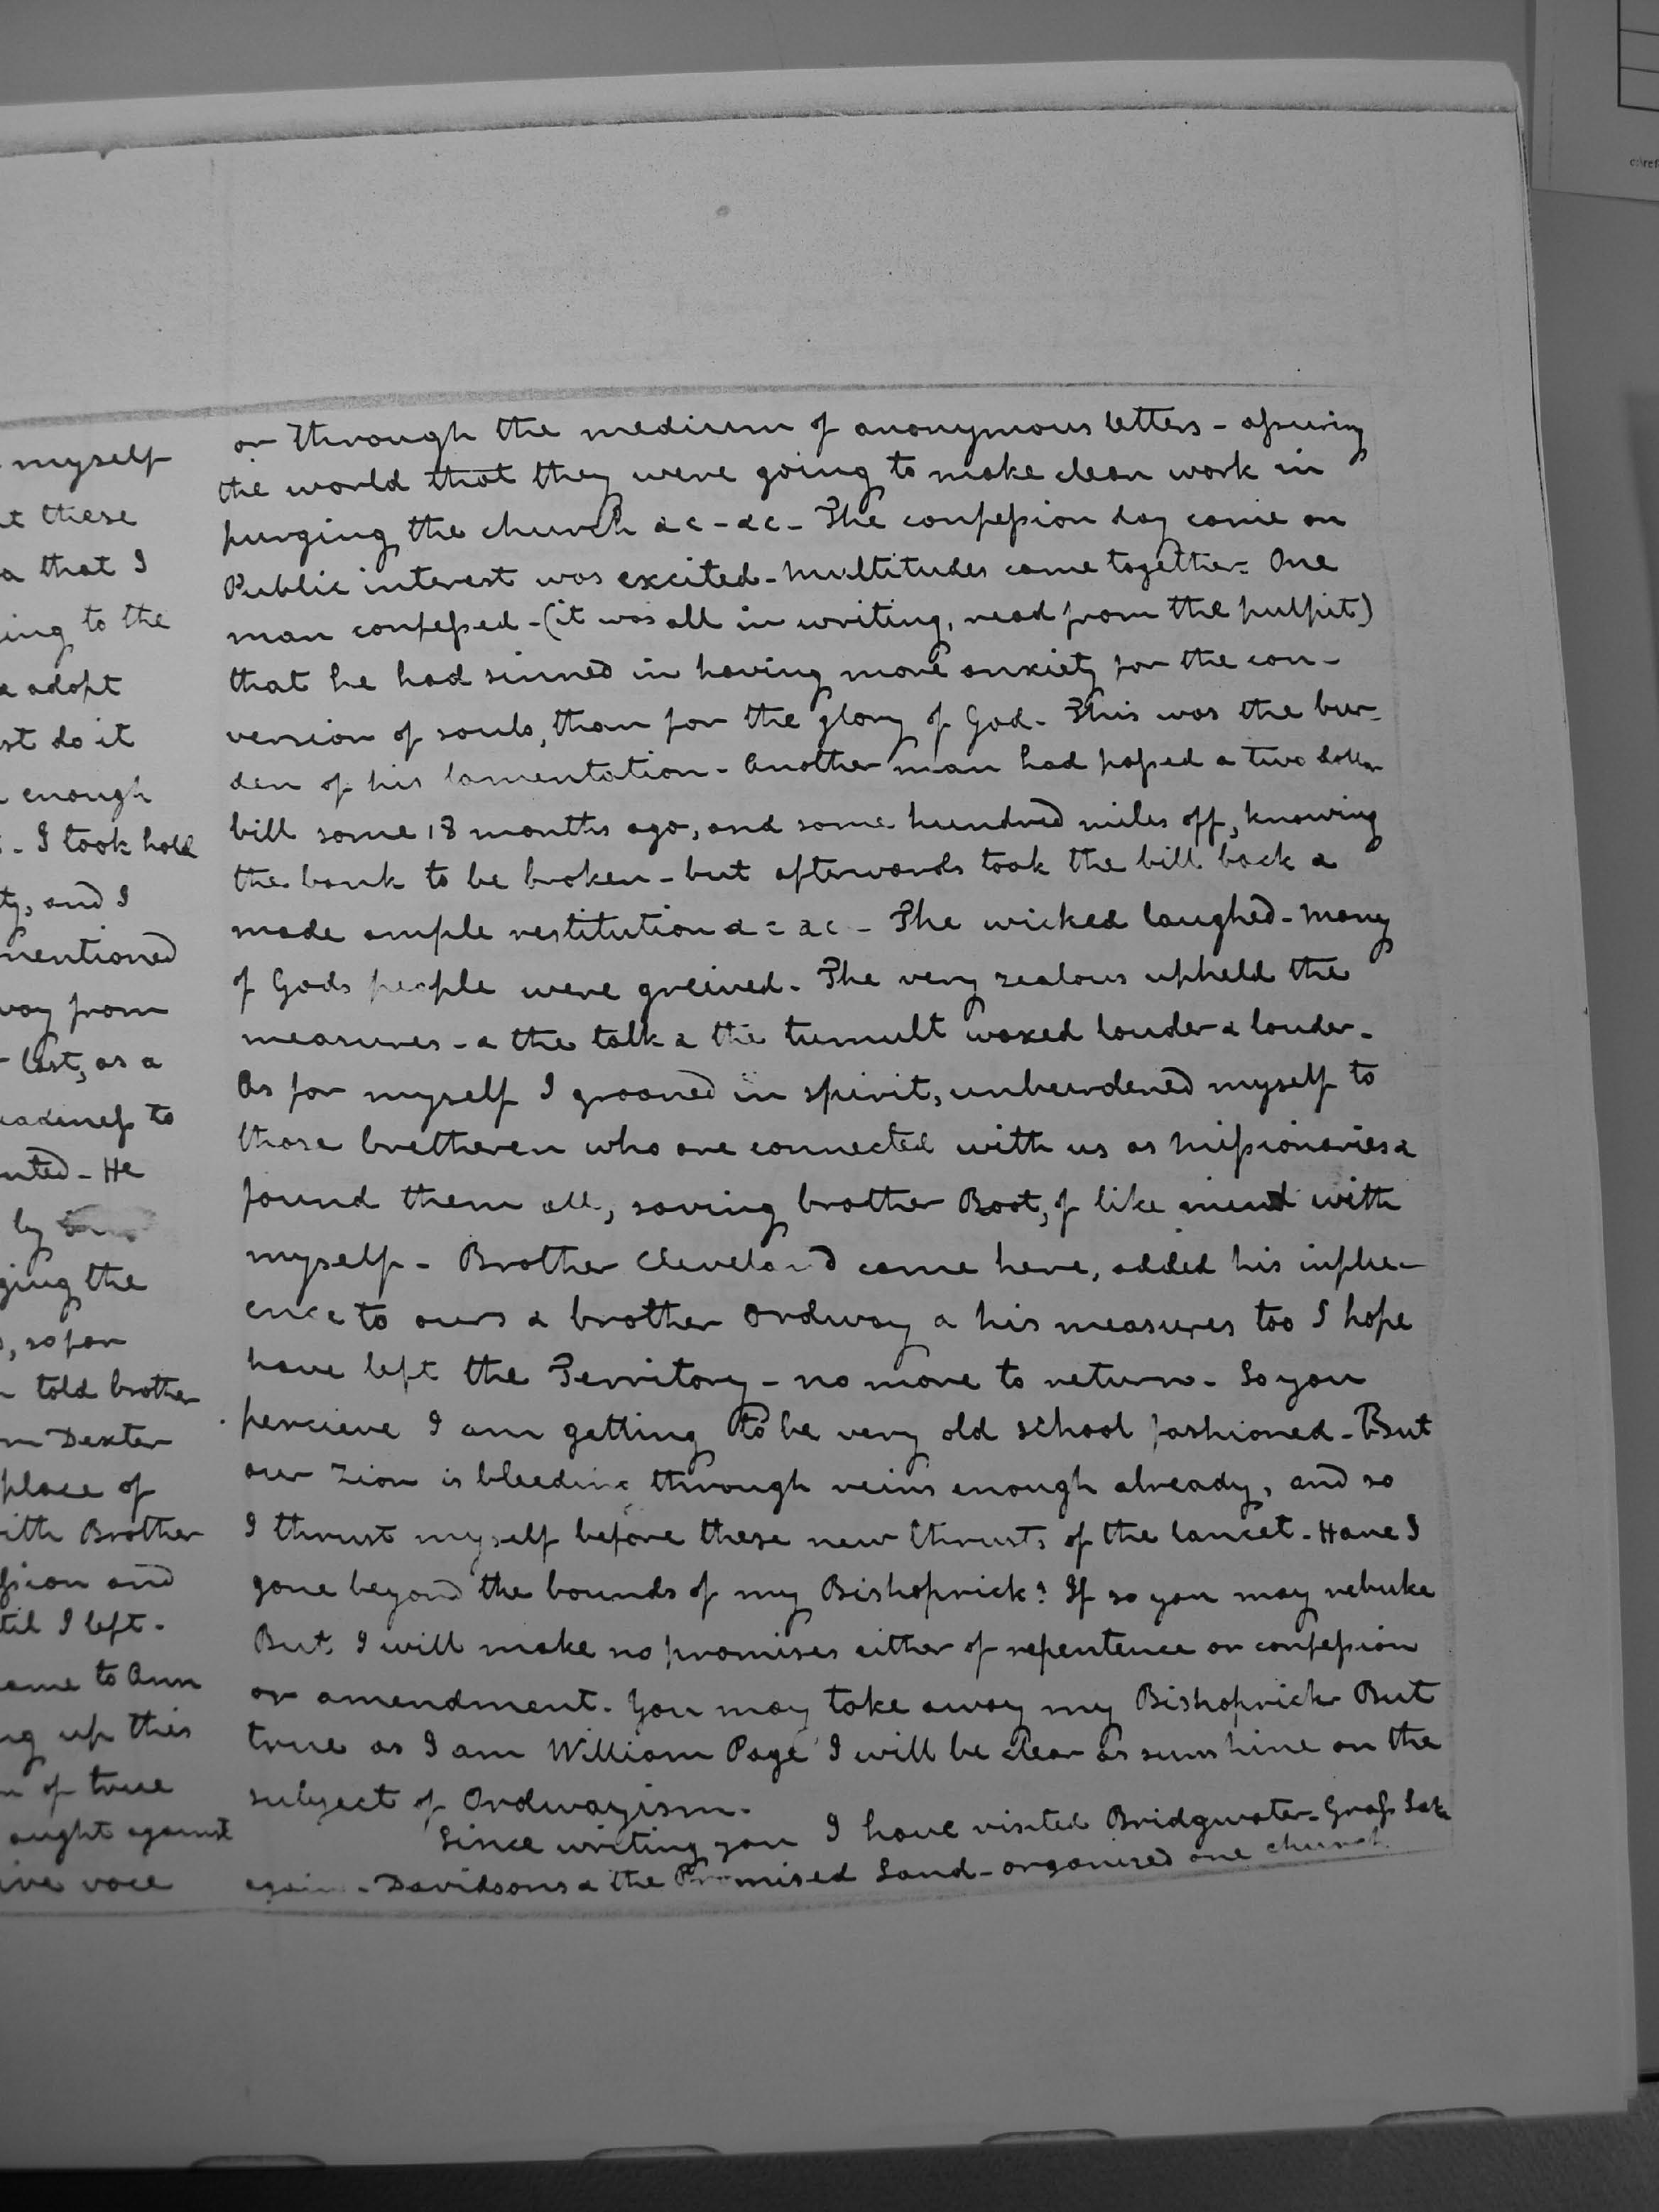 myself
these
that I
ing to the
adopt
st do it
enough
- I took hold
ty, and I
mentioned
way from
last, as a
eadiness to
nted - He
by
ging the
, so far
told brother
Dexter
place of
ith Brother
ssion and
til I left.
ame to Ann
ng up this
of true
ought against
ive voce
or through the medium of anonymous letters - assuring
the world that they were going to make clean work in
purging the church &c - &c - The confession day came on
Public interest was excited - Multitudes came together - One
man confessed - (it was all in writing, read from the pulpit)
that he had sinned in having more anxiety for the con-
version of souls, than for the glory of God - This was the bur-
den of his lamentation - Another man had passed a two dollar
bill some 18 months ago, and some hundred miles off, knowing
the bank to be broken - but afterwards took the bill back &
made ample restitution &c &c - The wicked laughed - Many
of Gods people were greived - The very zealous upheld the
measures - & the talk & the tumult waxed louder & louder -
As for myself I groaned in spirit, unburdened myself to
those bretheren who are connected with us as Missionaries &
found them all, saving brother Root, of like mind with
myself - Brother Cleveland came here, added his influ-
ence to ours & brother Ordway & his measures too I hope
have left the Territory - no more to return - So you
percieve I am getting to be very old school fashioned - But
our Zion is bleeding through veins enough already, and so
I thrust myself before these new thrusts of the lancet - Have I
gone beyond the bounds of my Bishoprick? If so you may rebuke
But I will make no promises either of repentence or confession
or amendment. You may take away my Bishoprick But
true as I am William Page I will be clear as sunshine on the
subject of Ordwayism.
Since writing you I have visited Bridgwater - Grass Lake
again - Davidsons & the Promised Land - organized one church